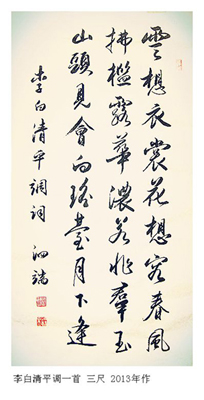 雲想衣裳花想容春風
拂檻露華濃若非羣玉
山頭見會向瑤臺月下逢
李白清平調詞 泗瑞
李白清平调一首 三尺 2013年作